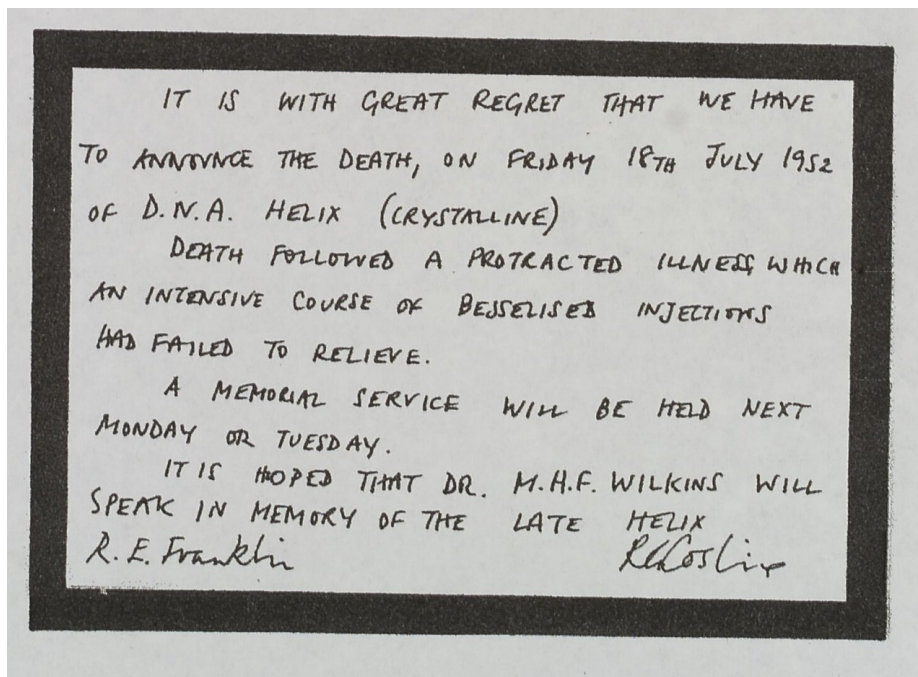 IT IS WITH GREAT REGRET THAT WE HAVE
TO ANNOUNCE THE DEATH, ON FRIDAY 18TH JULY 1952
OF D.N.A. HELIX (CRYSTALLINE)
DEATH FOLLOWED A PROTRACTED ILLNESS WHICH
AN INTENSIVE COURSE OF BESSELISED INJECTIONS
HAD FAILED TO RELIEVE.
A MEMORIAL SERVICE WILL BE HELD NEXT
MONDAY OR TUESDAY.
IT IS HOPED THAT DR. M.H.F. WILKINS WILL
SPEAK IN MEMORY OF THE LATE HELIX
R. E. Franklin RGGosling